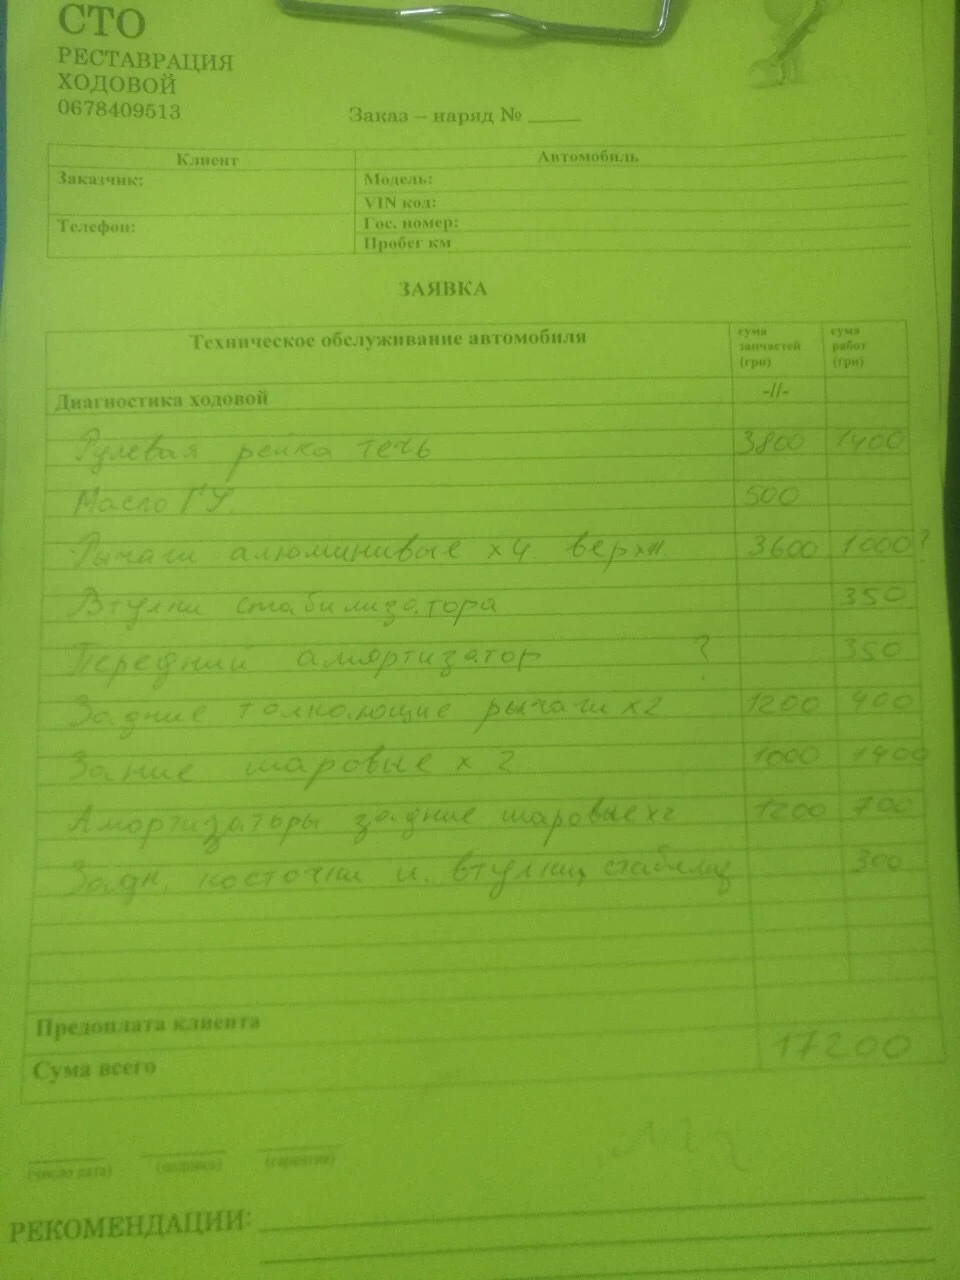 СТО
РЕСТАВРАЦИЯ
ХОДОВОЙ
0678409513
Заказ – наряд № ____
Клиент Автомобиль
Заказчик: Модель:
VIN код:
Телефон: Гос. номер:
Пробег км
ЗАЯВКА
Техническое обслуживание автомобиля сума запчастей (грн) сума работ (грн)
Диагностика ходовой -//-
Рулевая рейка течь 3800 1400
Масло ГУ. 500
Рычаги алюминивые х4. верхн. 3600 1000?
Втулки стабилизатора 350
Передний амортизатор ? 350
Задние толкающие рычаги х2 1200 400
Зание шаровые х 2 1000 1400
Амортизаторы задние шаровые х2 1200 700
Задн. косточки и. втулки стабилиз 300
Предоплата клиента
Сума всего 17200
(число дата) (подпись) (гарантия)
РЕКОМЕНДАЦИИ: